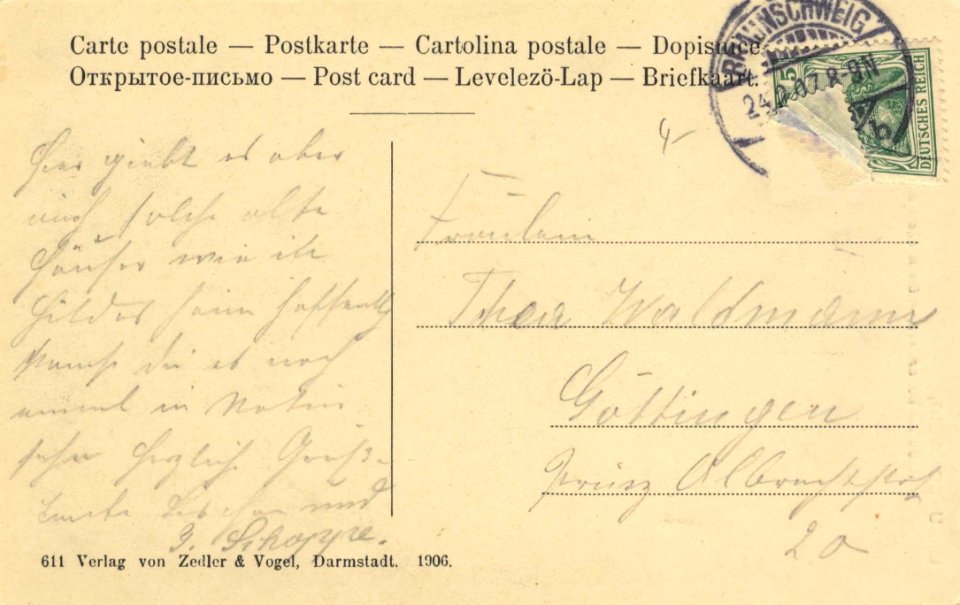 Carte postale — Postkarte — Cartolina postale — Dopisnice
Открытое-письмо — Post card — Levelezö-Lap — Briefkaart.
BRAUNSCHWEIG
24. 07. 8-9N
5
DEUTSCHES REICH
4-
Hier giebt es aber
auch solche alte
Häuser wie in
Hildesheim hoffentl.
kannst du es noch
einmal in Natur
sehen Herzliche Grüße
und
Fräulein
Thea Waldmann
Göttingen
Prinz Albrechtstr
20
611 Verlag von Zedler & Vogel, Darmstadt. 1906.